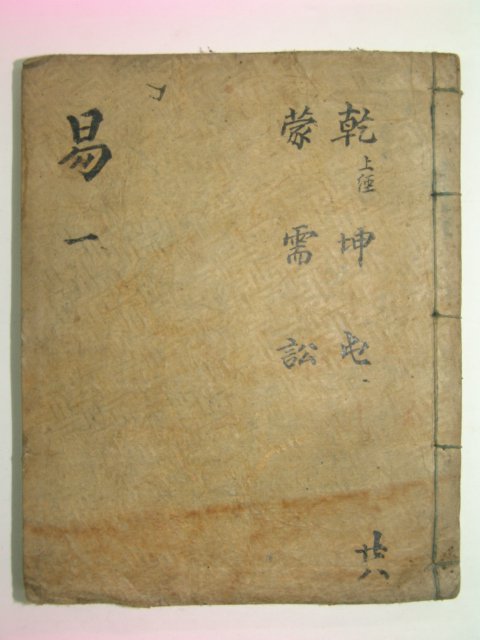 乾 上經 坤 屯
蒙 需 訟
易 一